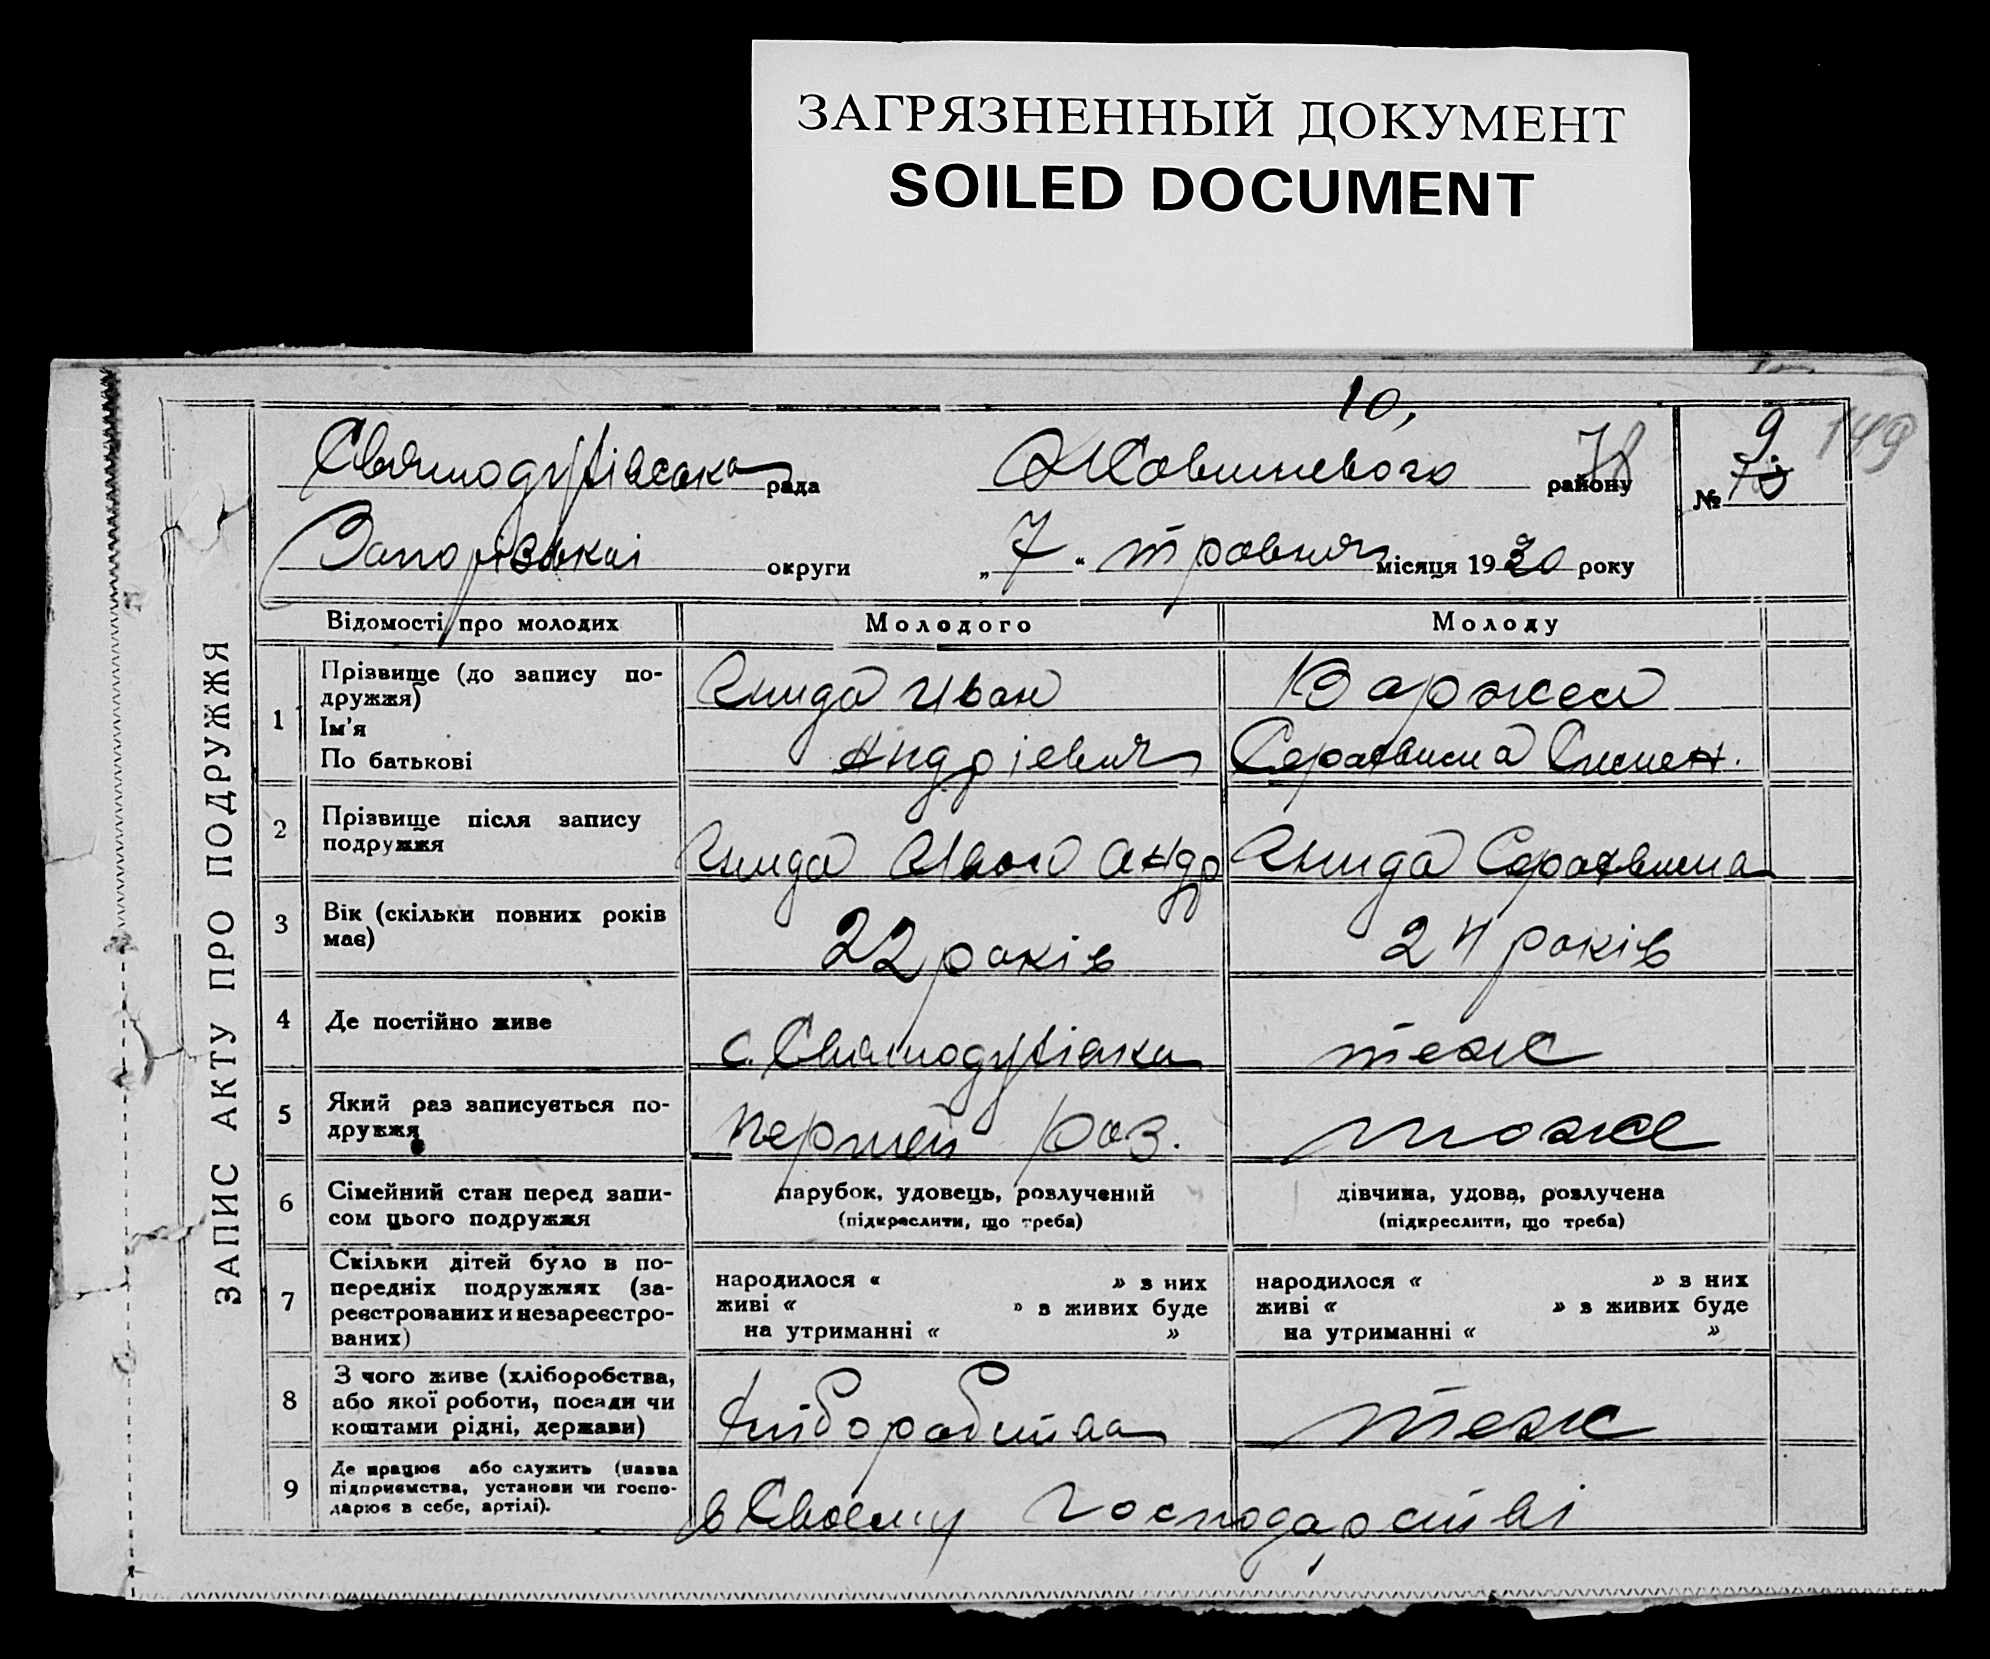 ЗАГРЯЗНЕННЫЙ ДОКУМЕНТ
SOILED DOCUMENT
10,
149
Святодухівська рада Жовтневого району 78 № 9.
Запорізької округи „ 7 “ травня місяця 1930 року
ЗАПИС АКТУ ПРО ПОДРУЖЖЯ
Відомості про молодих Молодого Молоду
1 Прізвище (до запису по-
дружжя)
Ім'я
По батькові
Гнида Иван
Андріевич
Серафима Симен.
2 Прізвище після запису
подружжя
Гнида Иван Андр
Гнида Серафима
3 Вік (скільки повних років
має)
22 років
24 років
4 Де постійно живе
с. Святодухівка
теж
5 Який раз записується по-
дружжя
перший раз.
тоже
6 Сімейний стан перед запи-
сом цього подружжя
парубок, удовець, розлучений
(підкреслити, що треба)
дівчина, удова, розлучена
(підкреслити, що треба)
7 Скільки дітей було в по-
передніх подружжях (за-
реєстрованих и незареєстро-
ваних)
народилося « » з них
живі « » з живих буде
на утриманні « »
народилося « » з них
живі « » з живих буде
на утриманні « »
8 З чого живе (хліборобства,
або якої роботи, посади чи
коштами рідні, держави)
хліборобства
теж
9 Де працює або служить (назва
підприємства, установи чи госпо-
дарює в себе, артілі).
в Своєму господарстві